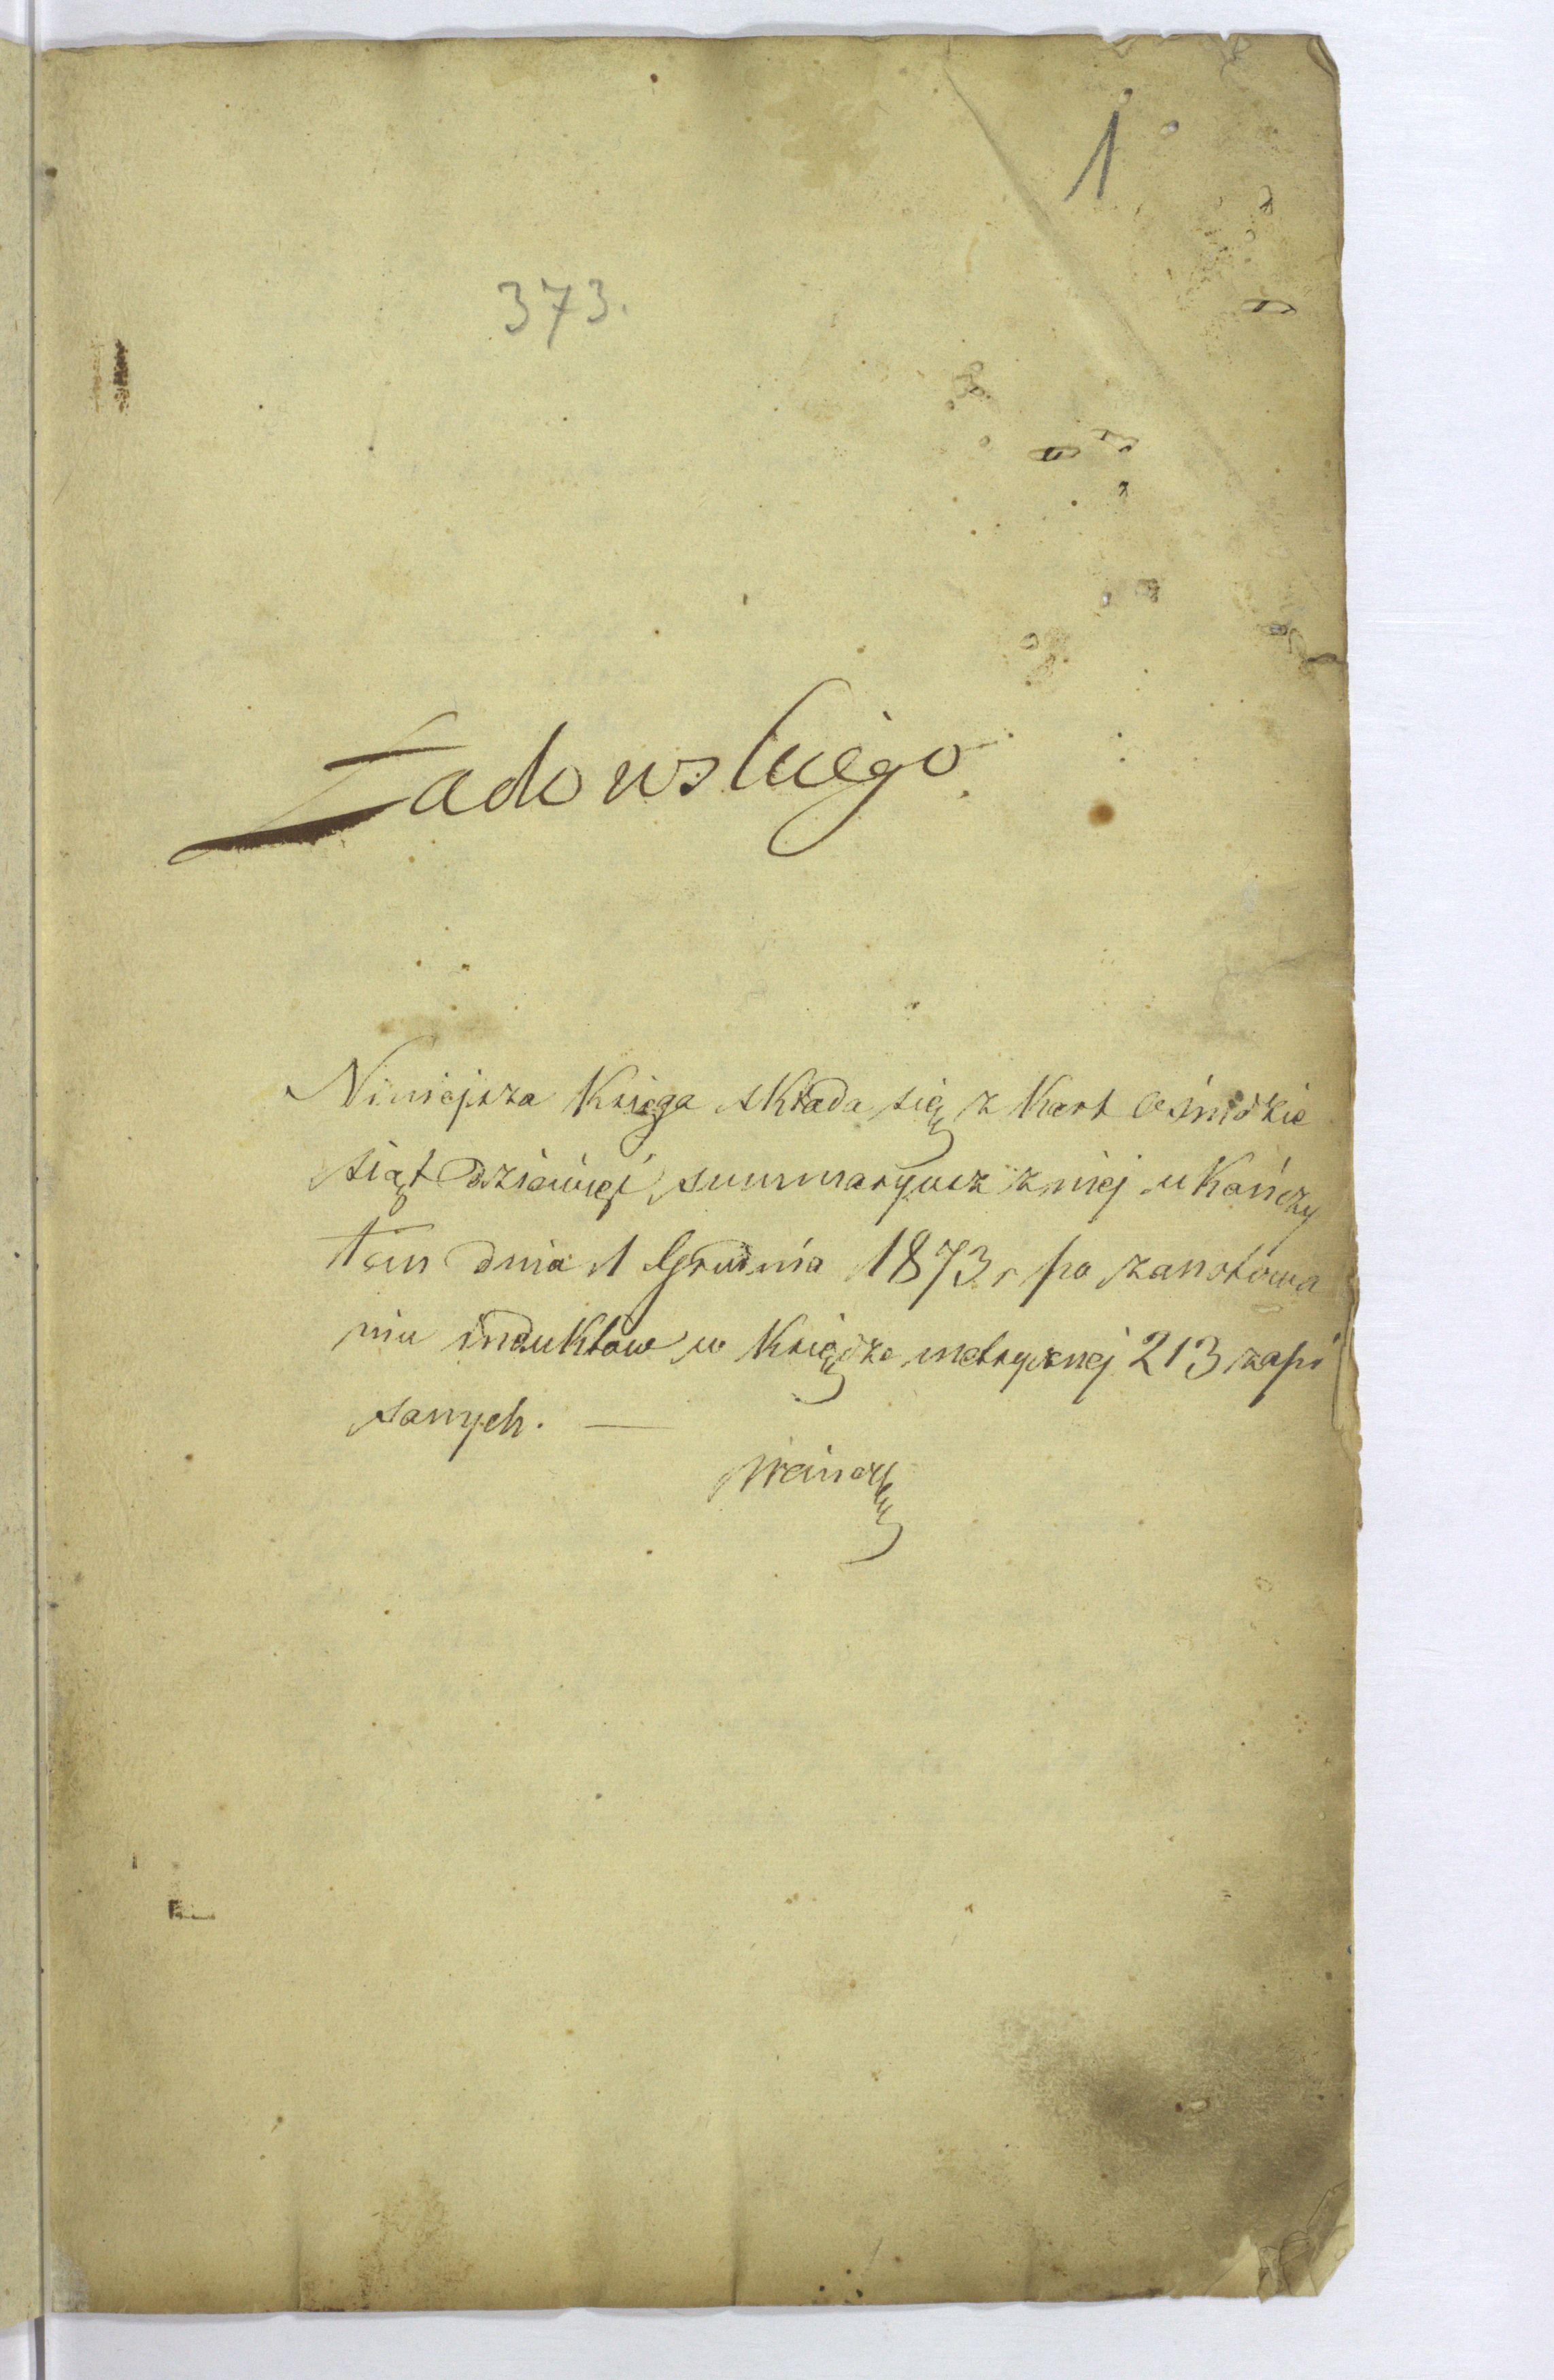 1
373.
Zadowskiego
Niniejsza Księga składa się z Kart ośmdzie
siąt dziewięć, summaryusz z niej ukończy
łem dnia 1 Grudnia 1873 r po zanotowa
niu induktów w Księdze metrycznej 213 zapi
sanych. —